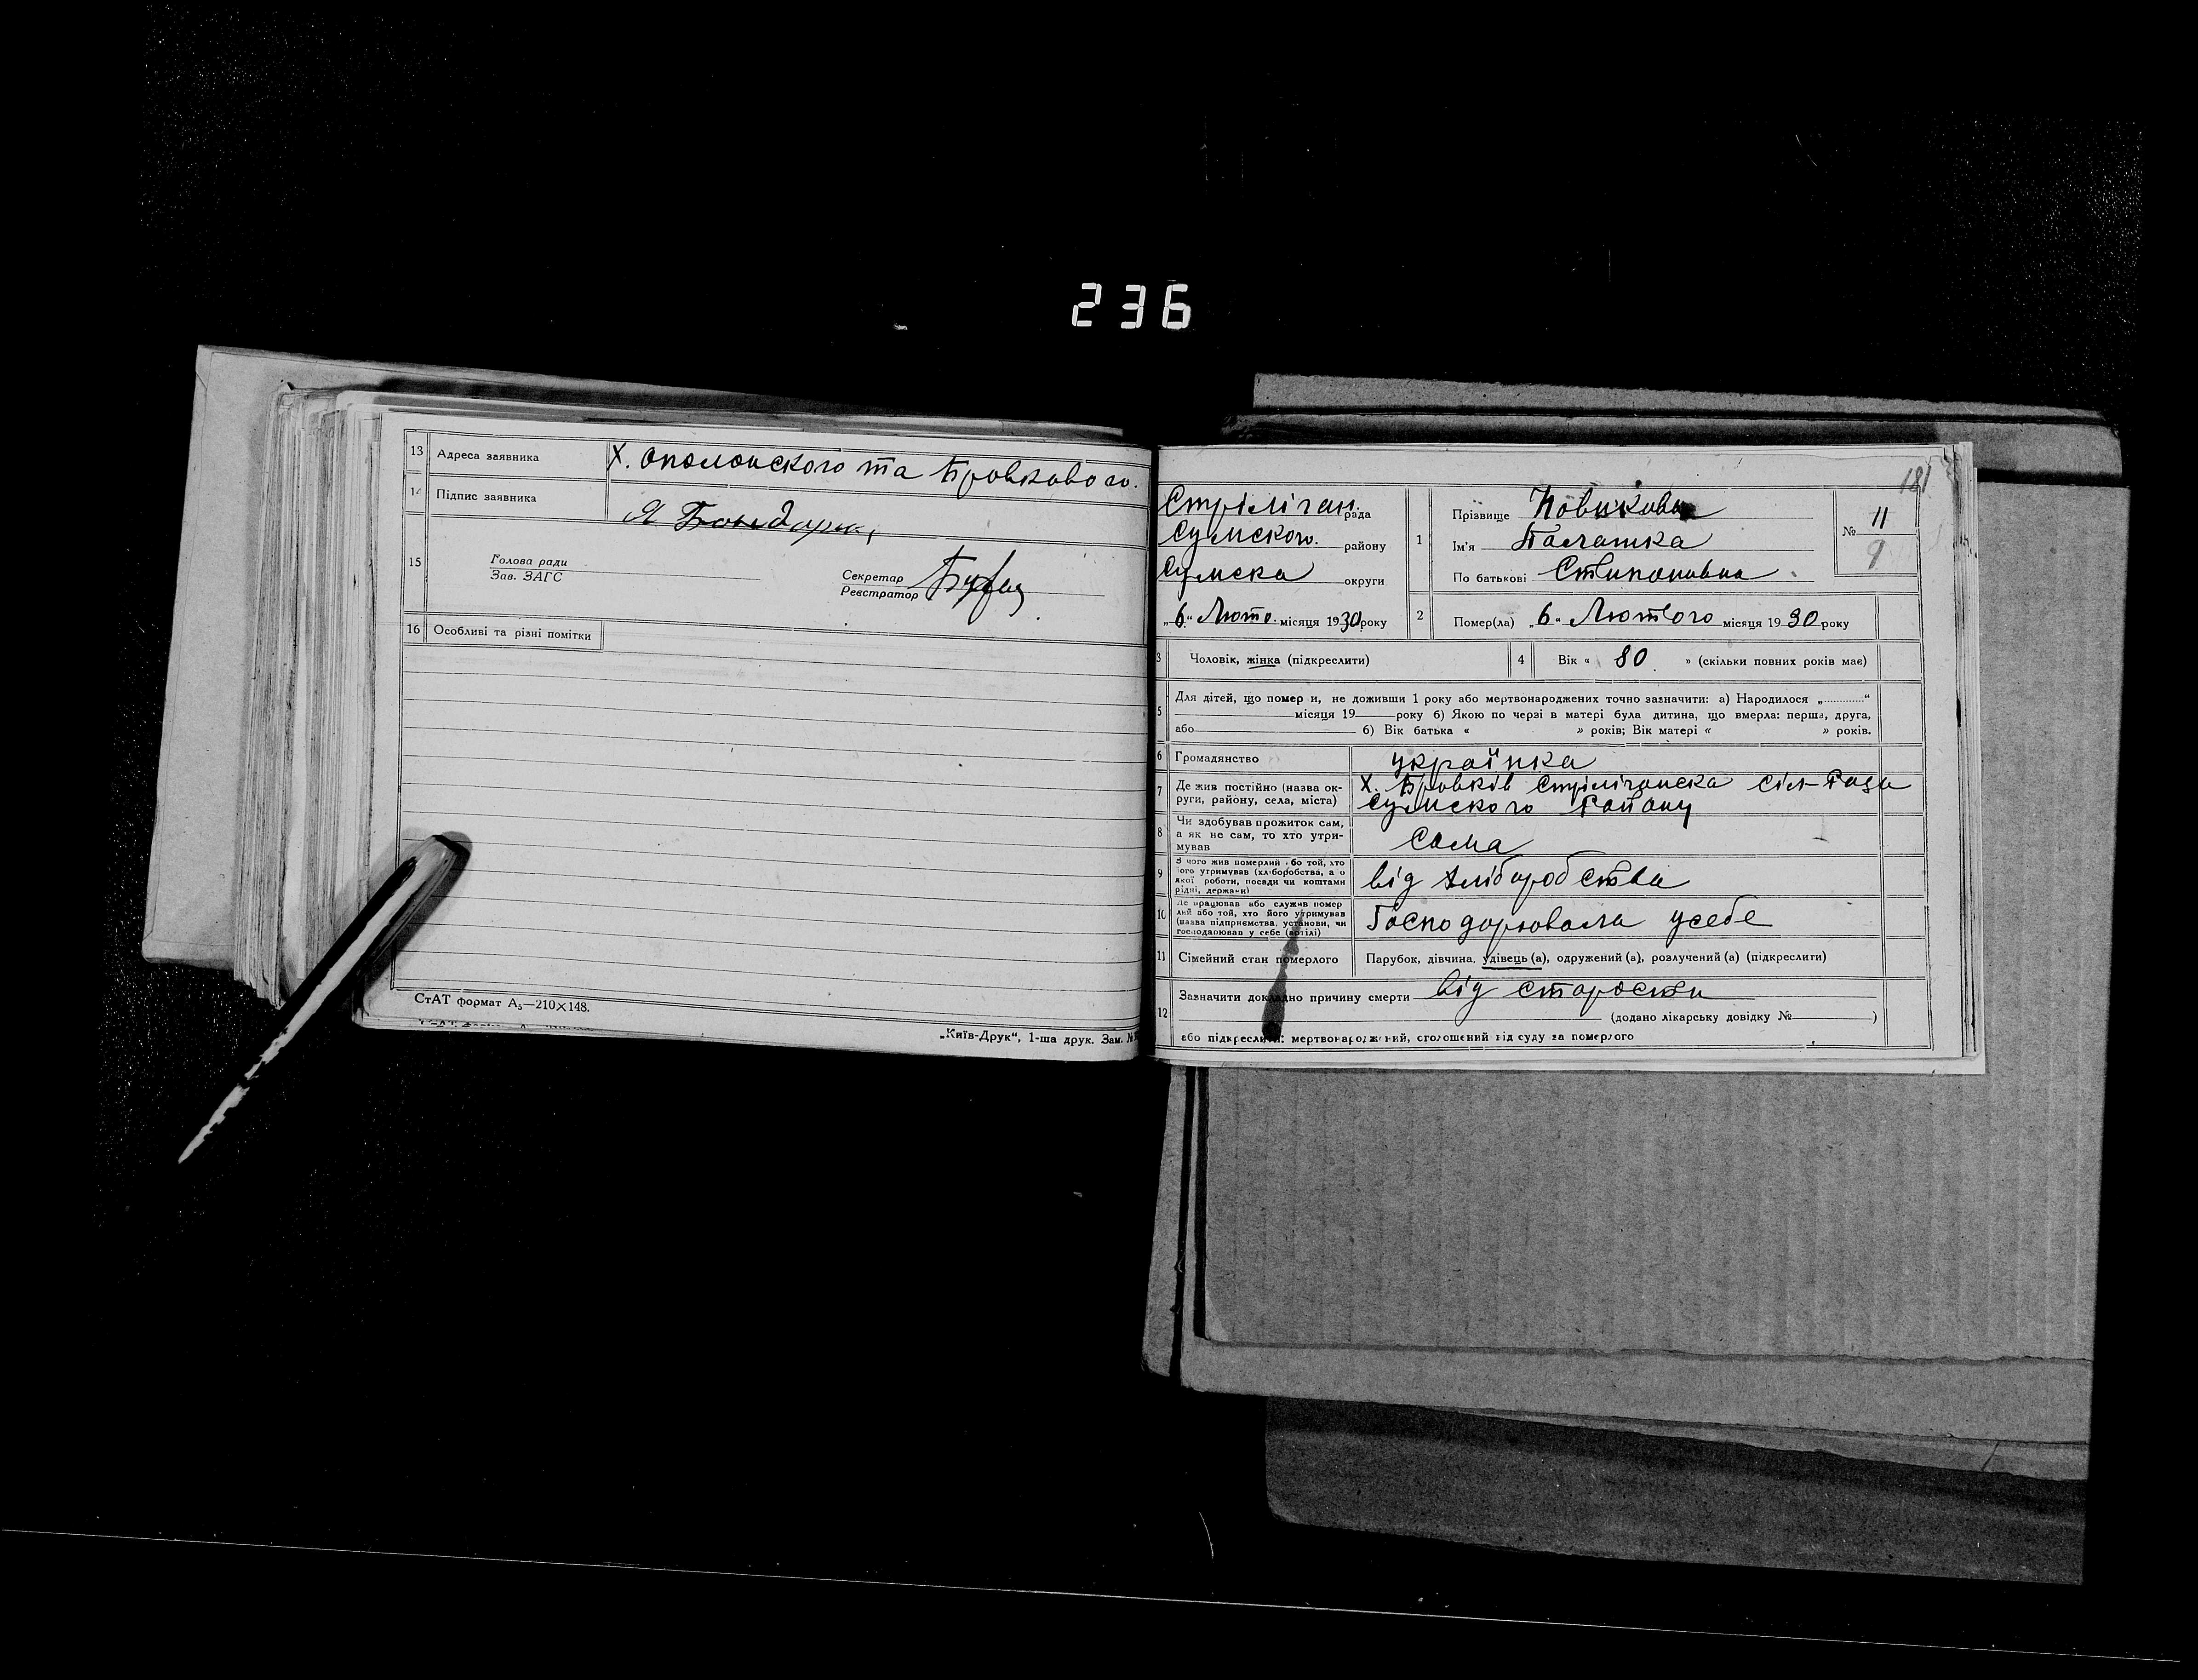 236
13 Адреса заявника Х. Ополонского та Бровкового.
14 Підпис заявника Я Бондарик,
15 Голова ради
Зав. ЗАГС
Секретар
Реєстратор
16 Особливі та різні помітки
СтАТ формат А₅—210×148.
„Київ-Друк“, 1-ша друк. Зам. №
181
Стріліган. рада
Сумского. району
Сумска округи
„6“ Люто. місяця 1930 року
1 Прізвище Новикова
Ім'я Палашка
По батькові Стипоновна
№ 11
9
2 Помер(ла) „6“ Лютого місяця 1930 року
3 Чоловік, жінка (підкреслити)
4 Вік « 80 » (скільки повних років має)
5 Для дітей, що помер и, не доживши 1 року або мертвонароджених точно зазначити: а) Народилося „...........“
місяця 19 року б) Якою по черзі в матері була дитина, що вмерла: перша, друга,
або б) Вік батька « » років; Вік матері « » років.
6 Громадянство українка
7 Де жив постійно (назва округи, району, села, міста) Х. Бровків Стріліганска Сіл-Рада
Сумского Району
8 Чи здобував прожиток сам,
а як не сам, то хто утри-
мував Сама
9 З чого жив померлий або той, хто
його утримував (хліборобства, а о
якої роботи, посади чи коштами
рідні, держави) від хліборобства
10 Де працював або служив помер
лий або той, хто його утримував
(назва підприємства, установи, чи
господарював у себе (артілі) Господорювала усебе
11 Сімейний стан померлого Парубок, дівчина, удівець (а), одружений (а), розлучений (а) (підкреслити)
12 Зазначити докладно причину смерти від старости
(додано лікарську довідку № )
або підкреслити: мертвонароджений, оголошений від суду за померлого